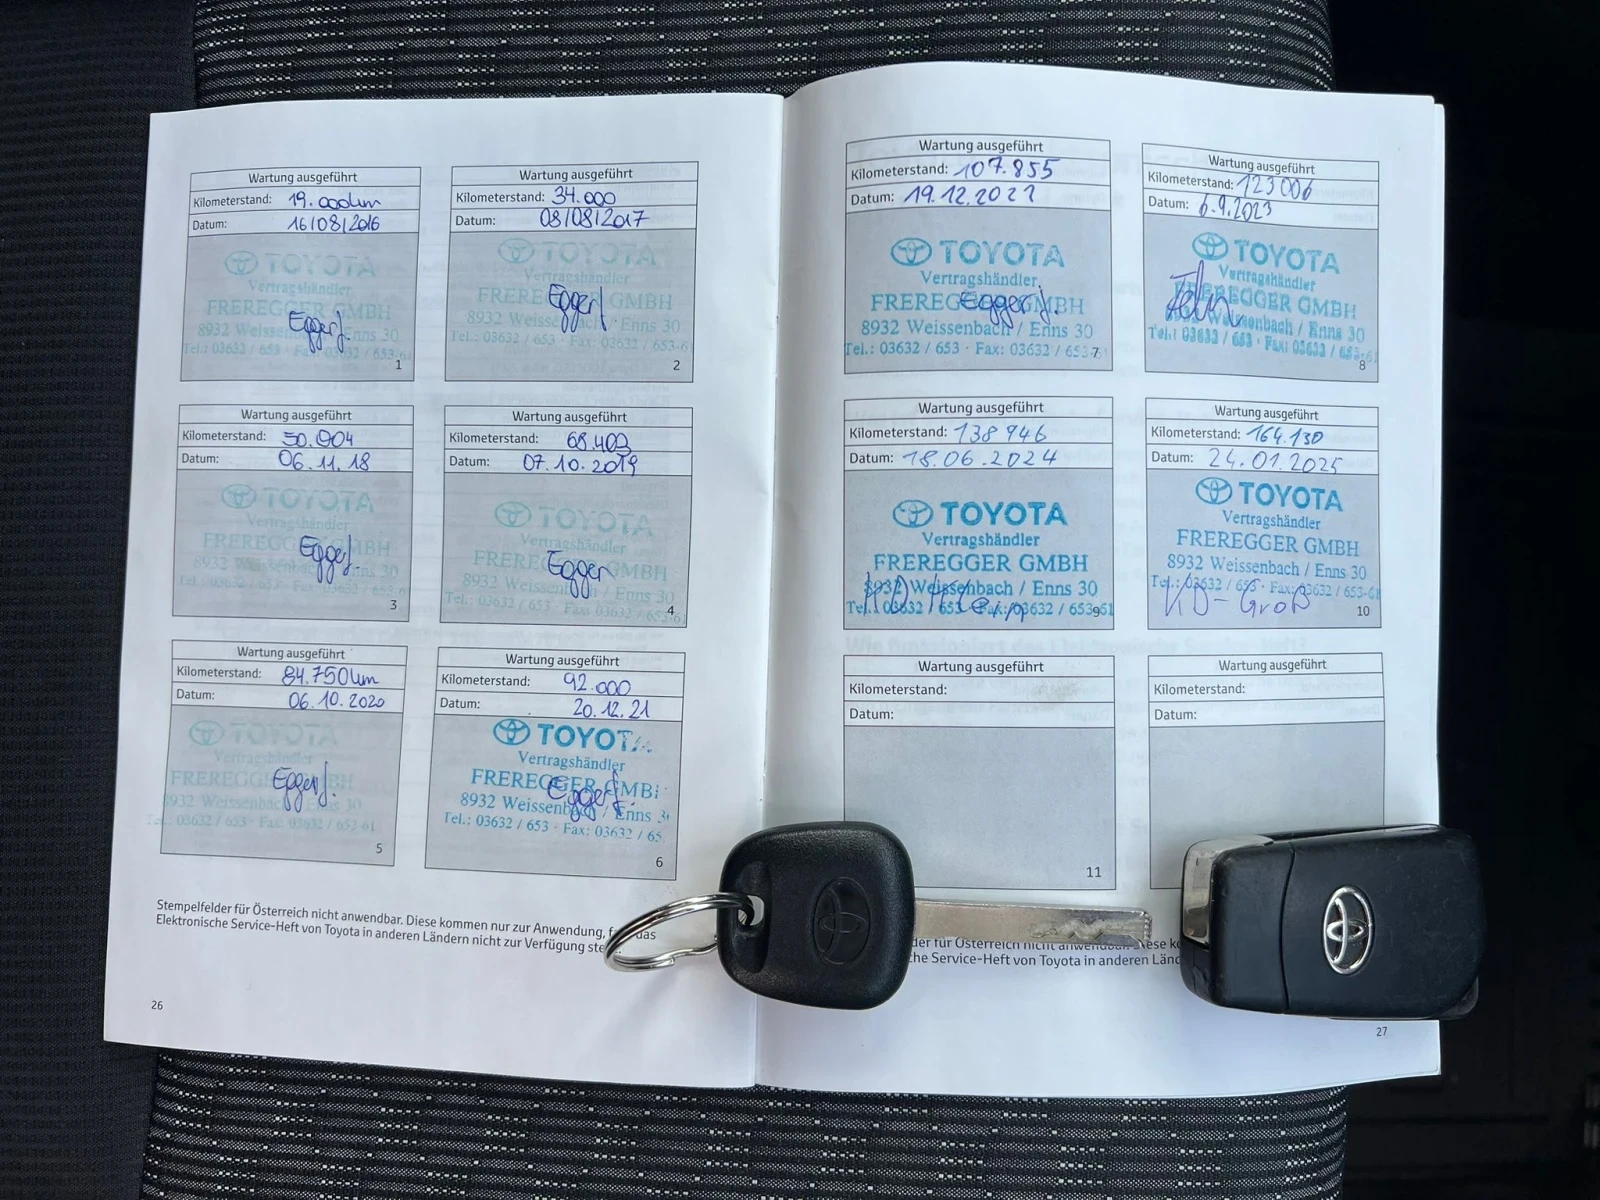 Wartung ausgeführt
Kilometerstand: 19.000km
Datum: 16/08/2016
TOYOTA
Vertragshändler
FREREGGER GMBH
8932 Weissenbach / Enns 30
Tel.: 03632 / 653 · Fax: 03632 / 653-61
1
Wartung ausgeführt
Kilometerstand: 34.000
Datum: 08/08/2017
TOYOTA
Vertragshändler
FREREGGER GMBH
8932 Weissenbach / Enns 30
Tel.: 03632 / 653 · Fax: 03632 / 653-6
2
Wartung ausgeführt
Kilometerstand: 50.004
Datum: 06.11.18
TOYOTA
Vertragshändler
FREREGGER GMBH
8932 Weissenbach / Enns 30
Tel.: 03632 / 653 · Fax: 03632 / 653-61
3
Wartung ausgeführt
Kilometerstand: 68.403
Datum: 07.10.2019
TOYOTA
Vertragshändler
FREREGGER GMBH
8932 Weissenbach / Enns 30
Tel.: 03632 / 653 · Fax: 03632 / 653-61
Egger
4
Wartung ausgeführt
Kilometerstand: 84.750km
Datum: 06.10.2020
TOYOTA
Vertragshändler
FREREGGER GMBH
8932 Weissenbach / Enns 30
Tel.: 03632 / 653 · Fax: 03632 / 653-61
5
Wartung ausgeführt
Kilometerstand: 92.000
Datum: 20.12.21
TOYOTA
Vertragshändler
FREREGGER GMB
8932 Weissenbach / Enns 3
Tel.: 03632 / 653 · Fax: 03632 / 65
6
Stempelfelder für Österreich nicht anwendbar. Diese kommen nur zur Anwendung, das
Elektronische Service-Heft von Toyota in anderen Ländern nicht zur Verfügung
26
Wartung ausgeführt
Kilometerstand: 107.855
Datum: 19.12.2022
TOYOTA
Vertragshändler
FREREGGER GMBH
8932 Weissenbach / Enns 30
Tel.: 03632 / 653 · Fax: 03632 / 653-
7
Wartung ausgeführt
Kilometerstand: 123006
Datum: 6.9.2023
TOYOTA
Vertragshändler
FREREGGER GMBH
8932 Weissenbach / Enns 30
Tel.: 03632 / 653 · Fax: 03632 / 653-61
8
Wartung ausgeführt
Kilometerstand: 138946
Datum: 18.06.2024
TOYOTA
Vertragshändler
FREREGGER GMBH
8932 Weissenbach / Enns 30
Tel.: 03632 / 653 · Fax: 03632 / 653-61
9
Wartung ausgeführt
Kilometerstand: 164.130
Datum: 24.01.2025
TOYOTA
Vertragshändler
FREREGGER GMBH
8932 Weissenbach / Enns 30
Tel.: 03632 / 653 · Fax: 03632 / 653-61
KD-Groß
10
Wartung ausgeführt
Kilometerstand:
Datum:
11
Wartung ausgeführt
Kilometerstand:
Datum:
für Österreich nicht anwendbar. Diese
Service-Heft von Toyota in anderen
27